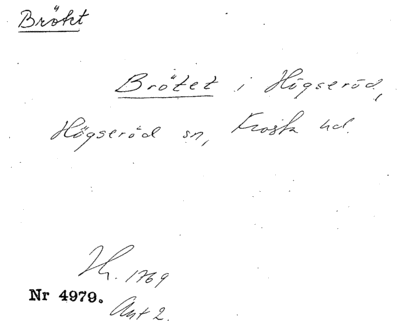 Brökt
Brötet i Högseröd,
Högseröd sn, Frosta hd.
Jh. 1769
Nr 4979.
Ant 2.